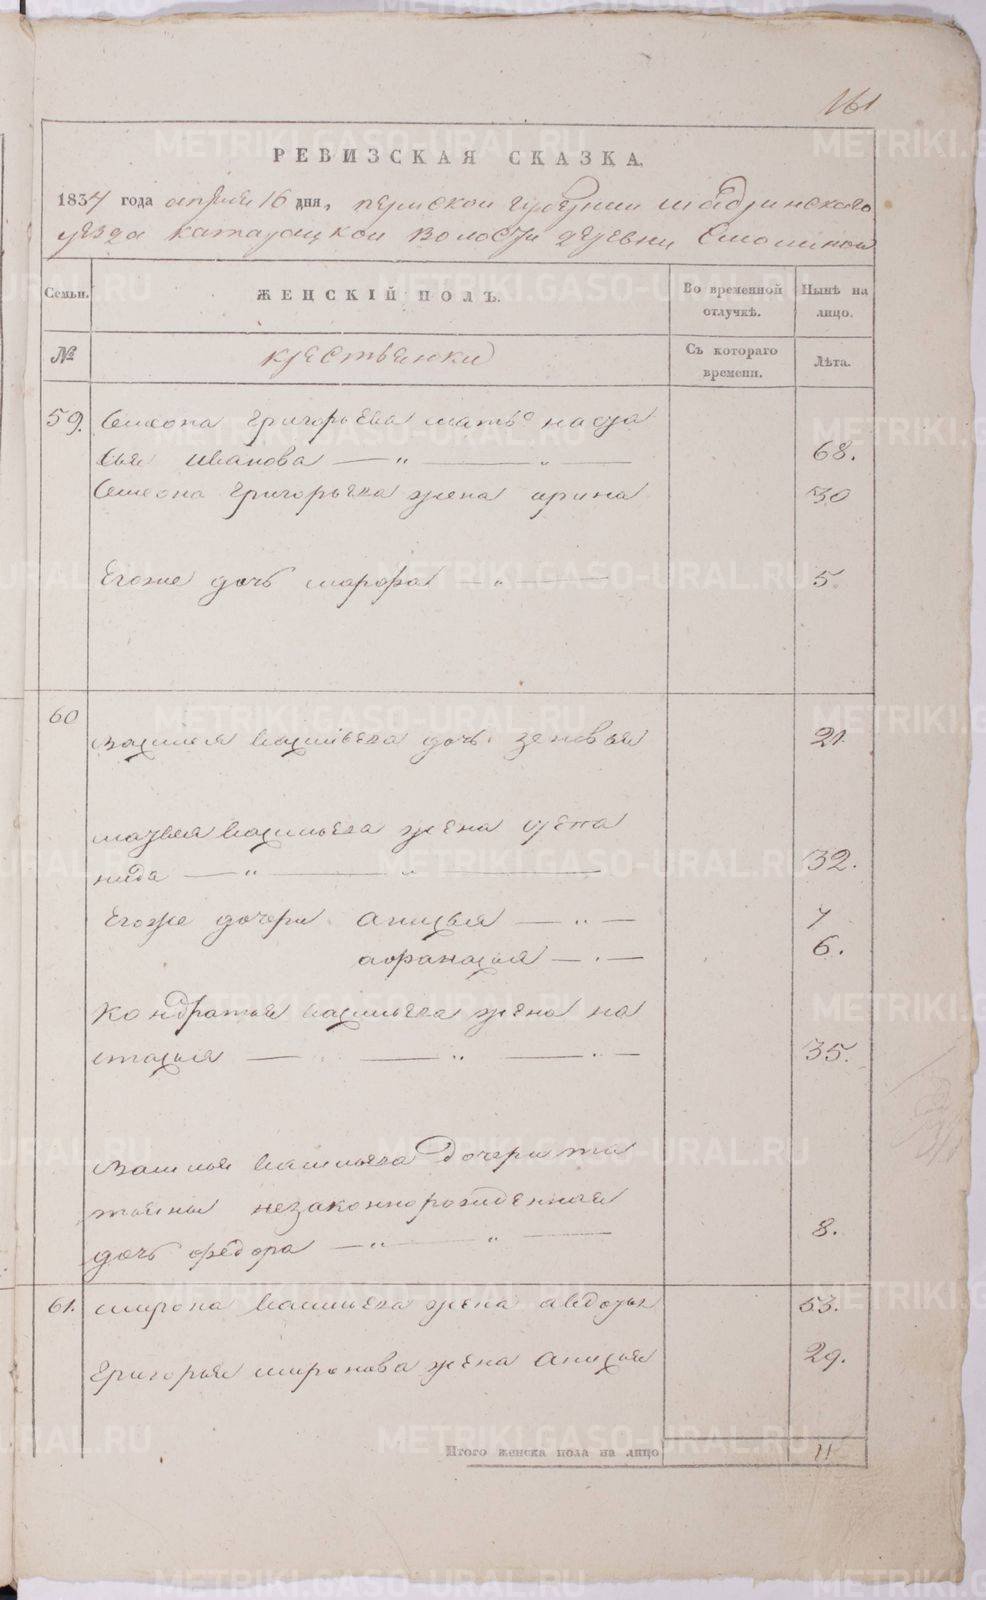 161
РЕВИЗСКАЯ СКАЗКА.
1834 года апреля 16 дня, пермской губернии шадринского
уезда катайской волости деревни
Семьи. ЖЕНСКІЙ ПОЛЪ. Во временной отлучкѣ. Нынѣ на лицо.
№ крестьянки Съ котораго времени. Лѣта.
59. Симеона григорьева мать наста
сья иванова — " — " — 68.
Симеона григорьева жена ирина 30
Егоже дочь марфа — " — 5.
60
василья васильева дочь зеновья 21.
матвея васильева жена степа
нида — " — " — 32.
Егоже дочери анисья — " — 7
афанасия — " — 6.
Кондратья васильева жена на
стасия — " — " — " — 35.
василья васильева дочери та
тьяны незаконнорожденная
дочь федора — " — " — 8.
61. мирона васильева жена авдотья 53.
Григорья миронова жена анисья 29.
Итого женска пола на лицо 11
METRIKI.GASO-URAL.RU